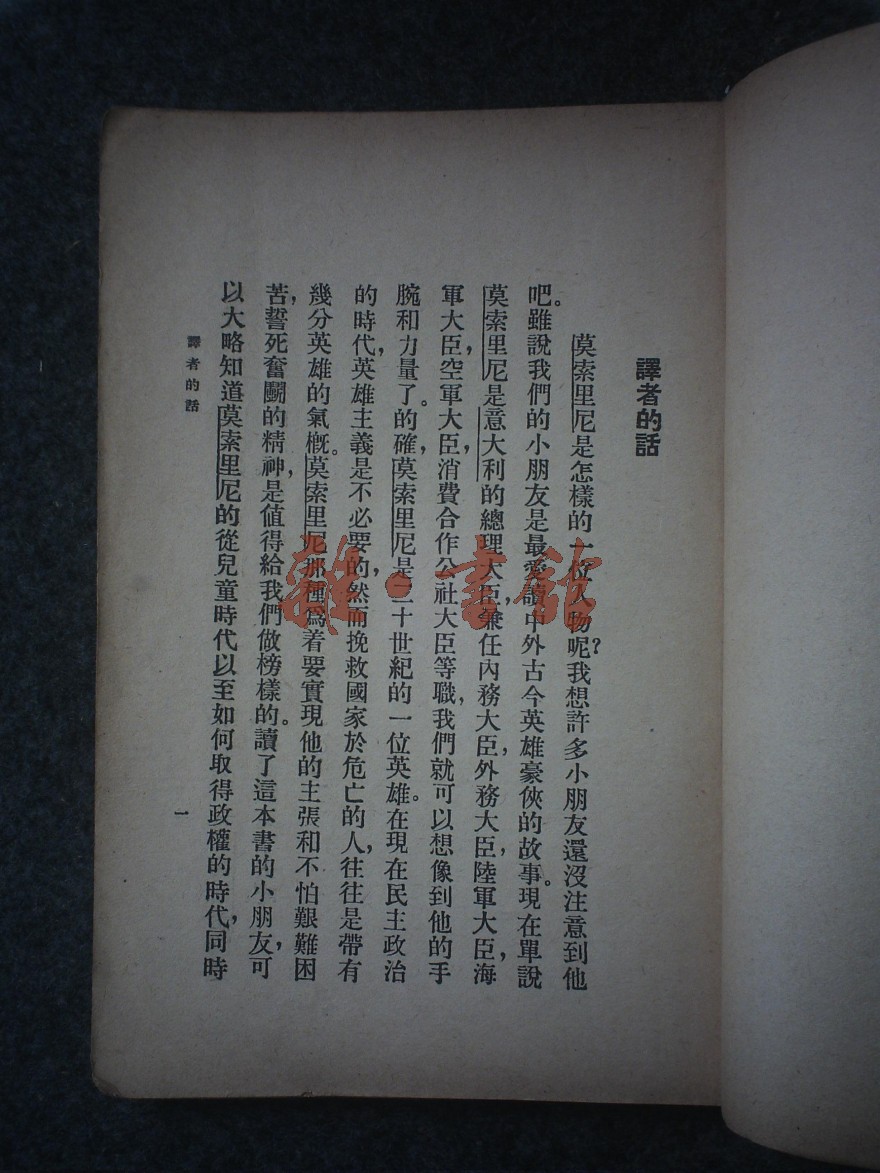 譯者的話
莫索里尼是怎樣的一位人物呢？我想許多小朋友還沒注意到他
吧。雖說我們的小朋友是最愛讀中外古今英雄豪俠的故事。現在單說
莫索里尼是意大利的總理大臣，兼任內務大臣，外務大臣，陸軍大臣，海
軍大臣，空軍大臣，消費合作公社大臣等職，我們就可以想像到他的手
腕和力量了。的確，莫索里尼是二十世紀的一位英雄。在現在民主政治
的時代，英雄主義是不必要的，然而挽救國家於危亡的人，往往是帶有
幾分英雄的氣概。莫索里尼那種爲着要實現他的主張和不怕艱難困
苦，誓死奮鬭的精神，是值得給我們做榜樣的。讀了這本書的小朋友，可
以大略知道莫索里尼的從兒童時代以至如何取得政權的時代，同時
譯者的話
一
雜·書館